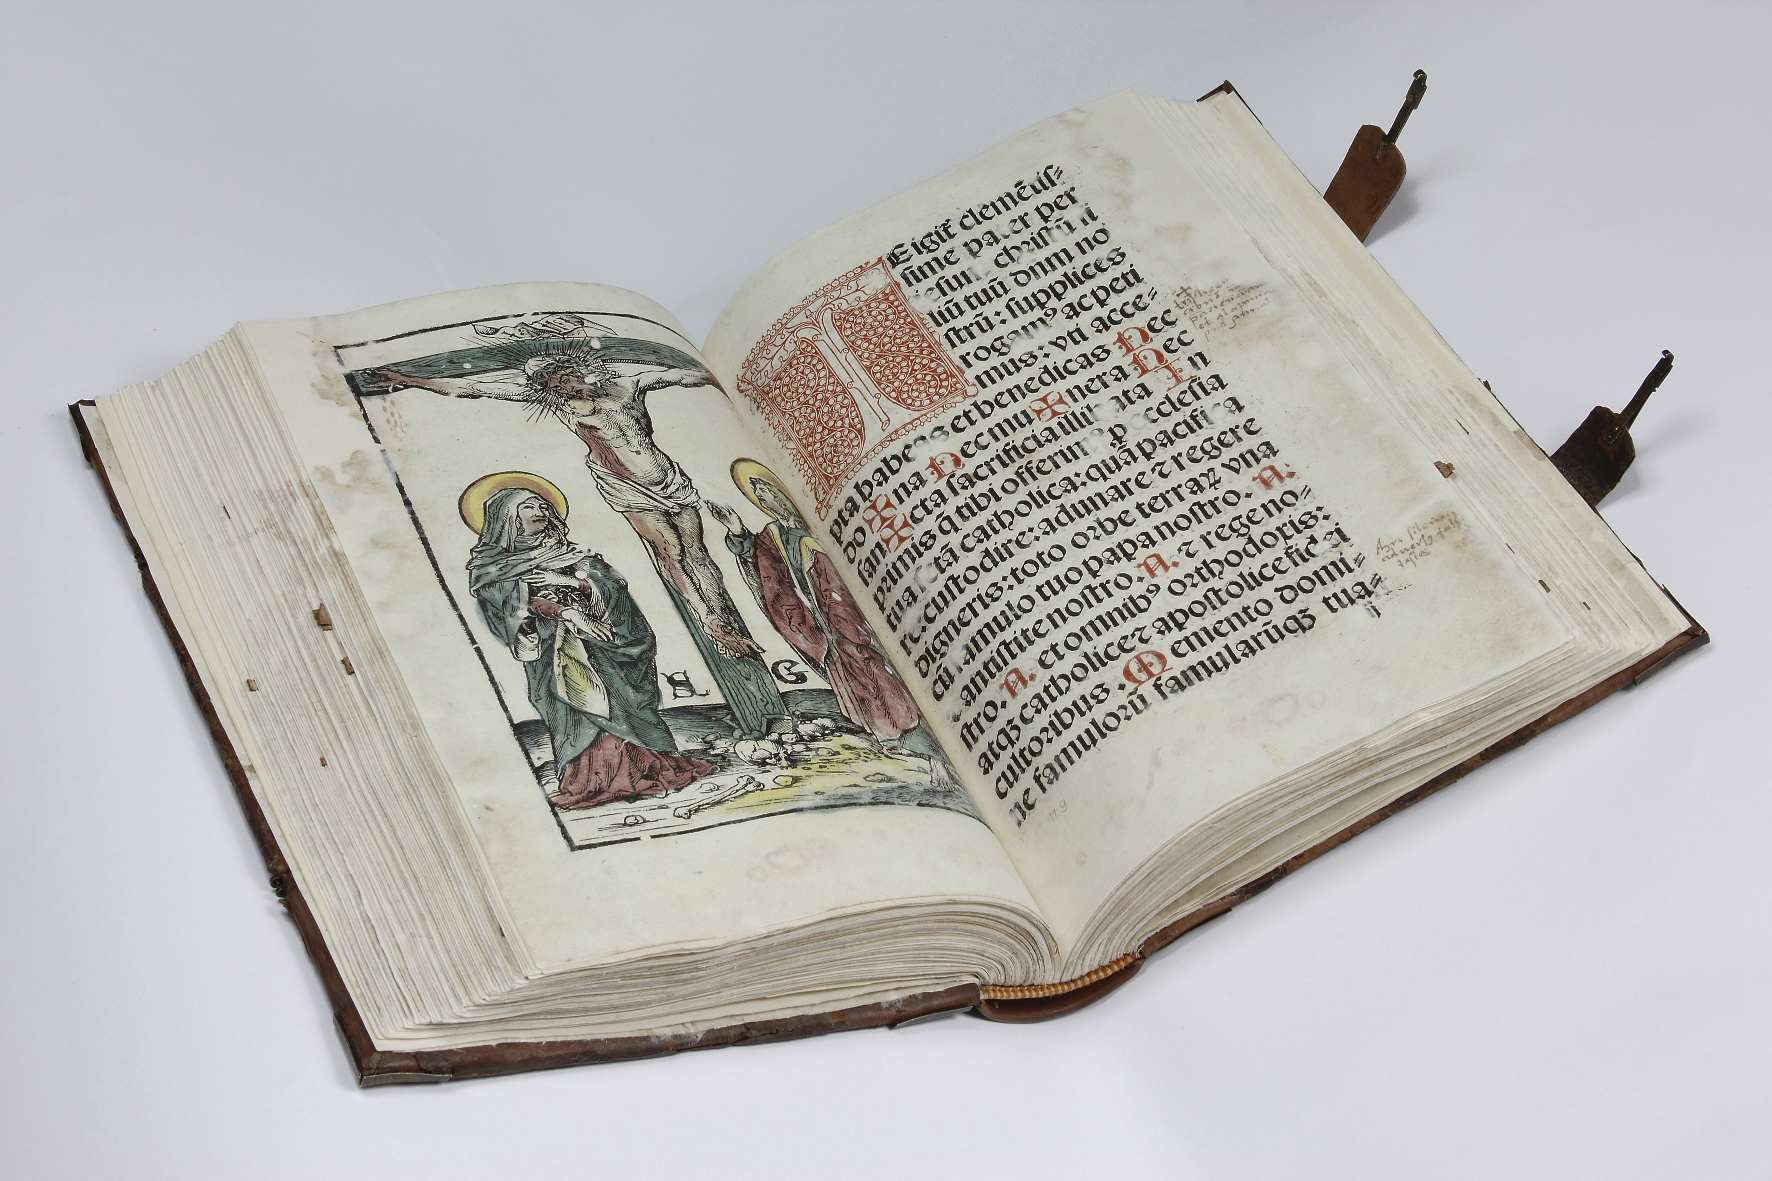 S G
TEigit᷑ clemētis⸗
sime pater per
iesum christū fi
liū tuū dnm no
strū: supplices
rogamꝰ ac peti
mus: vti acce⸗
pta habeas et benedicas Hec
do ✠ na Hec mu ✠ nera Hec
san ✠ cta sacrificia illibata In
primis q̄ tibi offerimꝰ ꝓ ecclesia
tua sctā catholica: quā pacifica
re: custodire: adunare ⁊ regere
digneris: toto orbe terraꝝ vna
cū famulo tuo papa nostro. A.
et antistite nostro. A. ⁊ rege no⸗
stro. A. et omnibꝰ orthodoxis:
atqꝫ catholice ⁊ apostolice fidei
cultoribus. Memento domi⸗
ne famulorū famularūqꝫ tua⸗